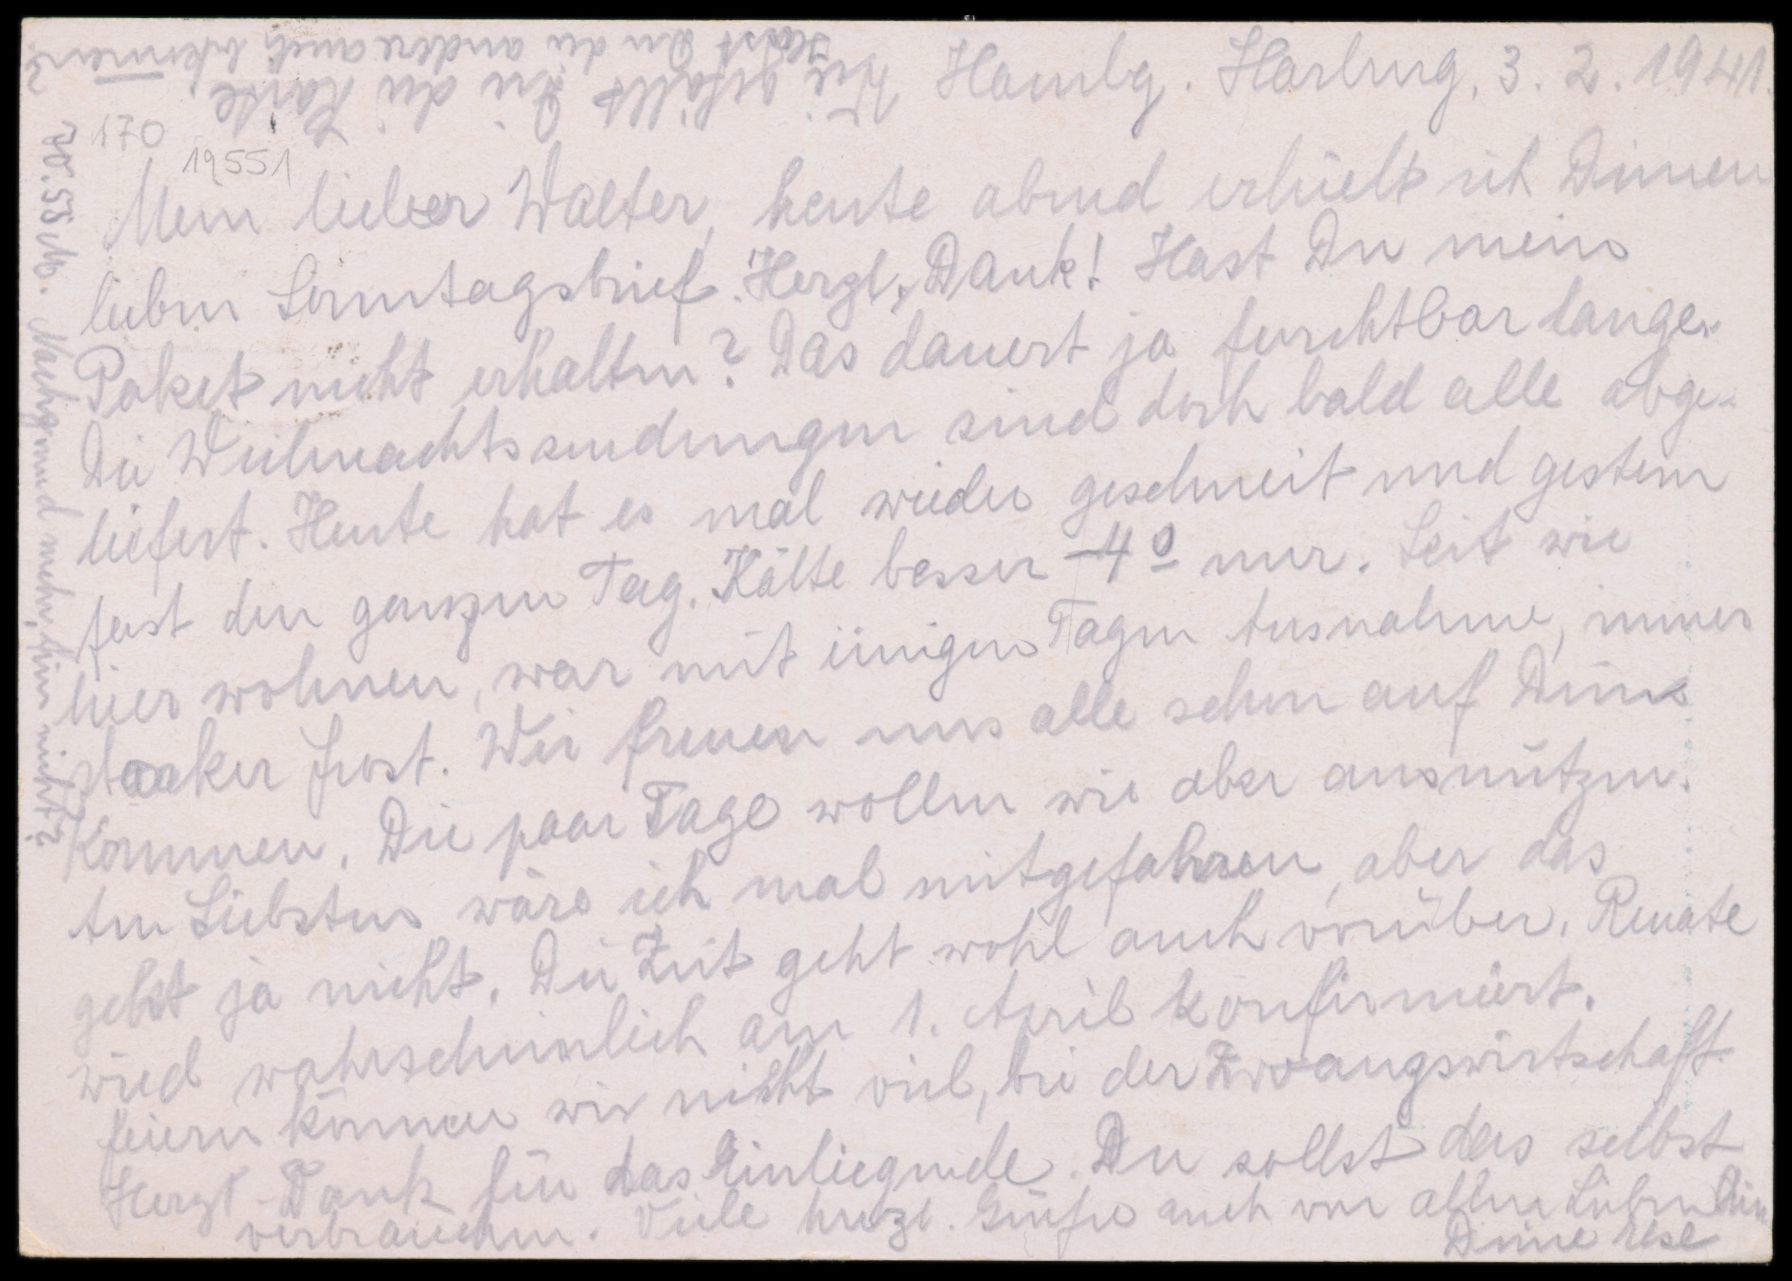 Hambg. Harburg, 3. 2. 1941.
Mein lieber Walter, heute abend erhielt ich Deinen
lieben Sonntagsbrief. Herzl. Dank! Hast Du mein
Paket nicht erhalten? Das dauert ja furchtbar lange.
Die Weihnachtssendungen sind doch bald alle abge-
liefert. Heute hat es mal wieder geschneit und gestern
fast den ganzen Tag. Kälte besser -4º nur. Seit wir
hier wohnen, war mit einigen Tagen Ausnahme, immer
starker Frost. Wir freuen uns alle schon auf Dein
Kommen. Die paar Tage wollen wir aber ausnützen.
Am Liebsten wäre ich mal mitgefahren, aber das
geht ja nicht. Die Zeit geht wohl auch vorüber. Renate
wird wahrscheinlich am 1. April konfirmiert.
feiern können wir nicht viel, bei der Zwangswirtschaft.
Herzl. Dank für das Einliegende. Du sollst das selbst
verbrauchen. Viele herzl. Grüße auch von allen Lieben
Deine
Wie gefällt Dir die Karte,
Hast Du die andere auch bekommen?
70.55 M. Nachg und mehr, hin nicht?
170
19551